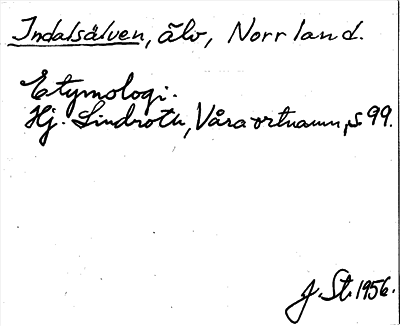 Indalsälven, älv, Norrland.
Etymologi.
Hj. Lindroth, Våra ortnamn, s 99.
J. St. 1956.